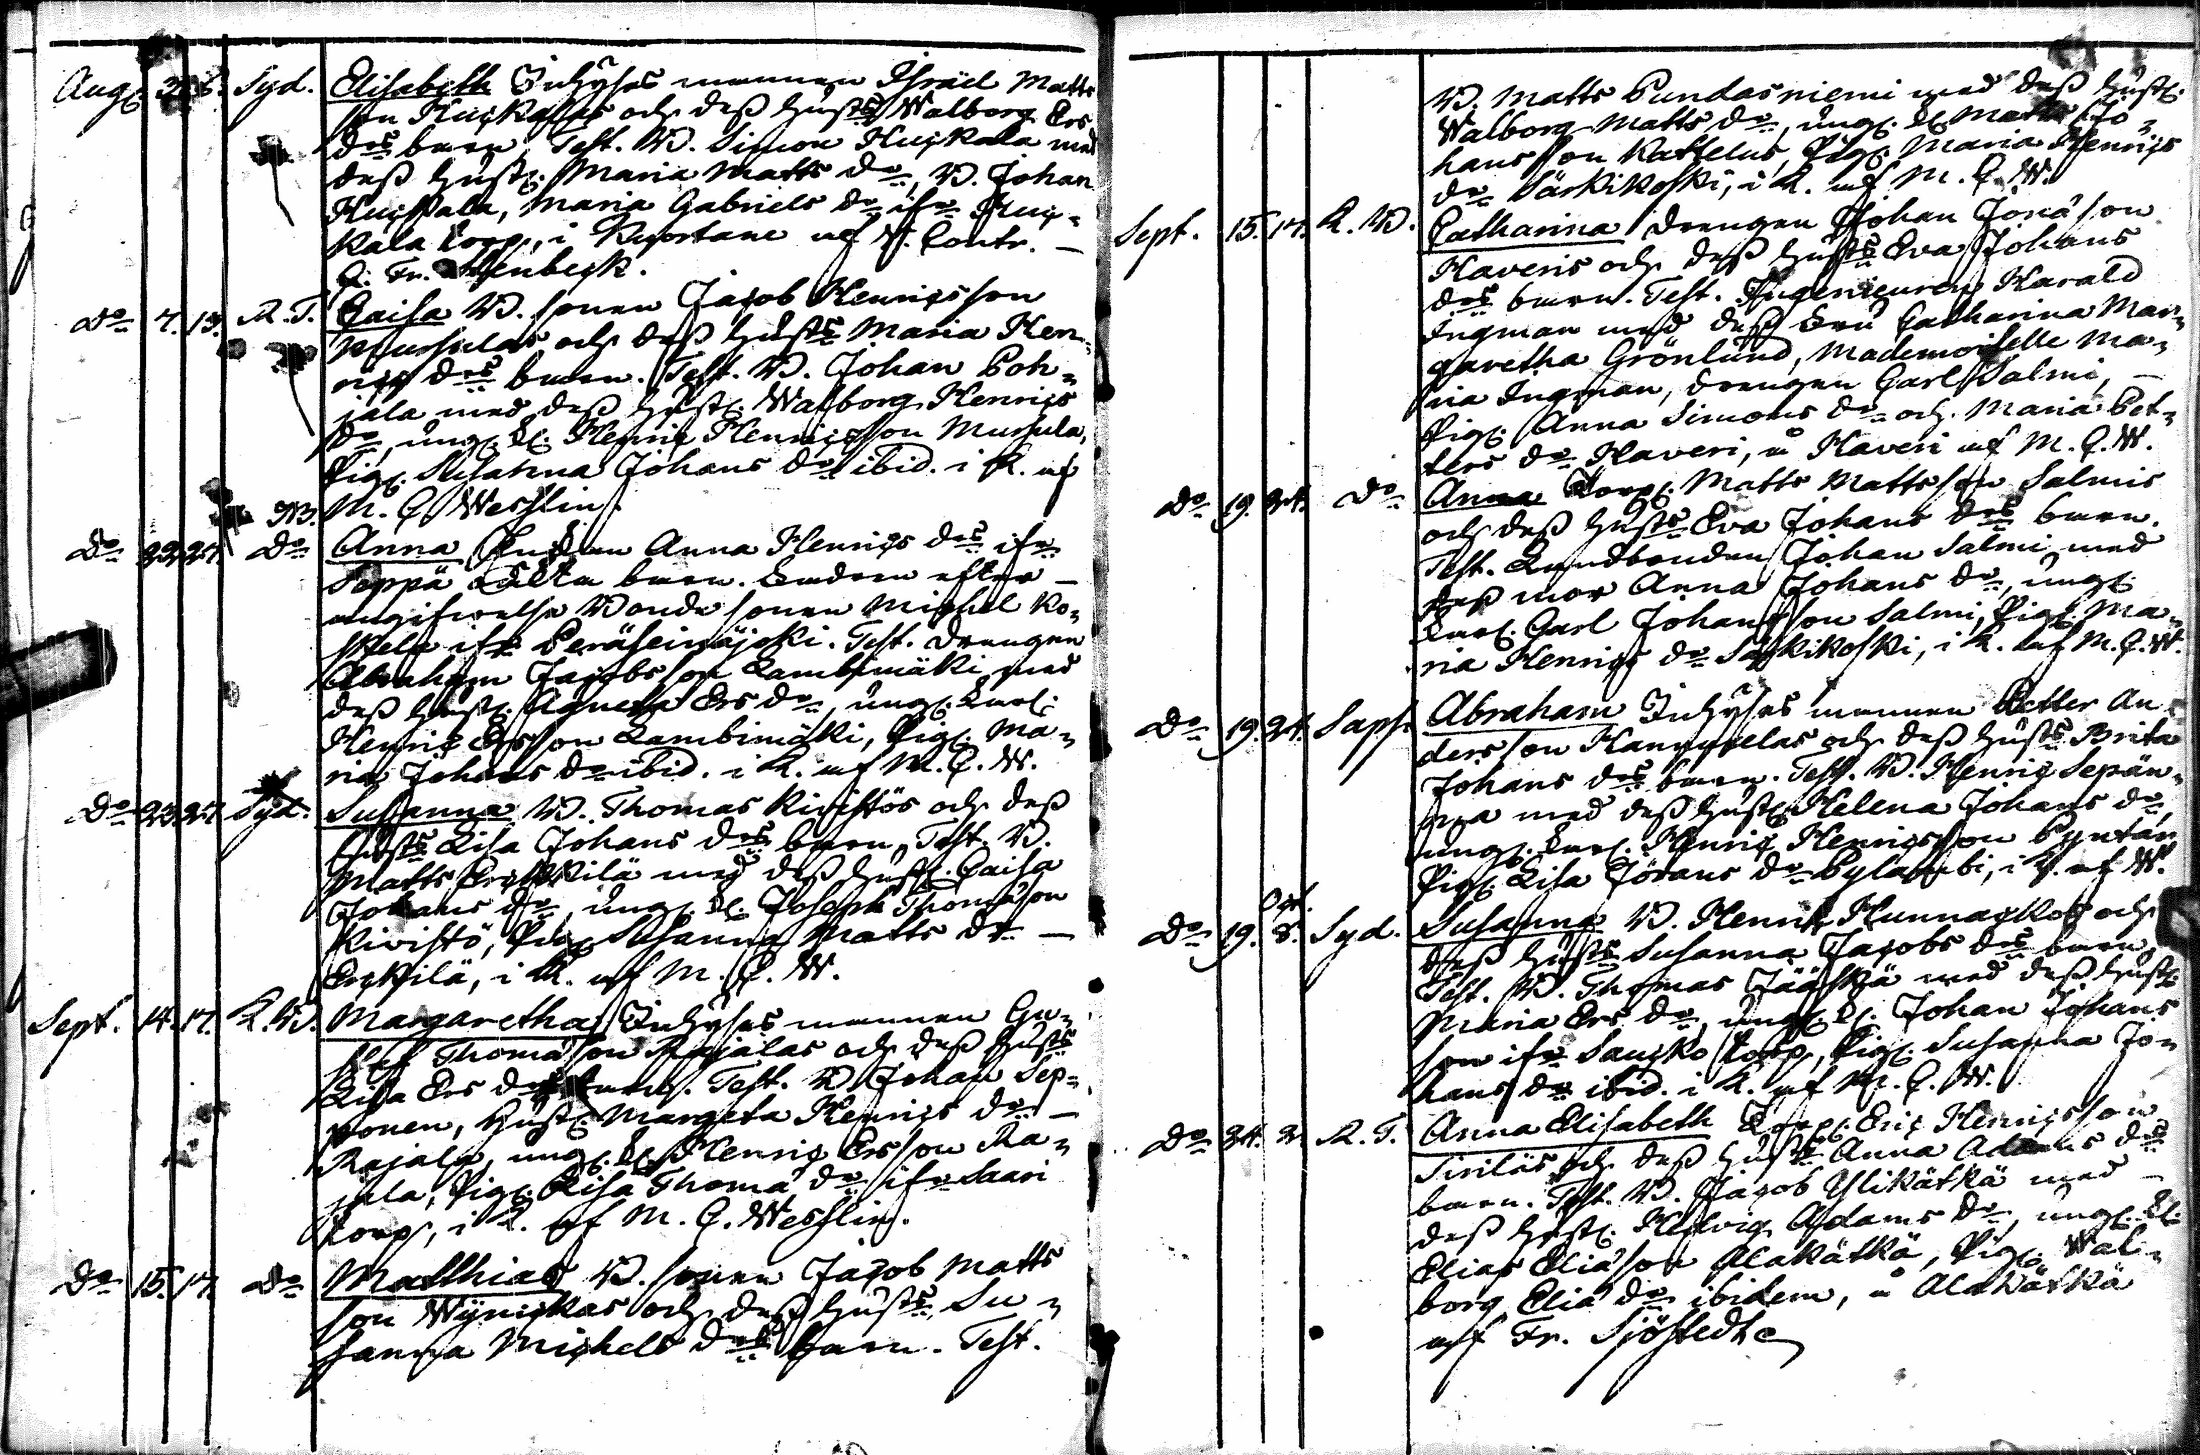 Aug. Syd. Elisabeth Inhyses mannen Israël Matts
son Huckalas och dess hust: Walborg Ers
d:rs barn. Test. B. Simon Huckala med
dess hust. Maria Matts d:r, B. Johan
Huckala, Maria Gabriels d:r ifr. Huc-
kala torp, i Kuortane af V. Contr.
G. Fr.
D:o 7. 13. K. T. Caisa B. sonen Jacob Henricsson
Mursulas och dess hust: Maria Hen-
rics d:rs barn. Test. B. Johan Poh-
jala med dess hust. Walborg Henrics
d:r, ung. k. Henric Henricsson Mursula,
Pig. Susanna Johans d:r ibid. i K. af
NB. M. C. Wesslin.
D:o 22. 27. D:o Anna Enkan Anna Henrics d:rs ifr.
Seppä barn. Fadren efter
angifwelse Bonde sonen Michel Ko-
skela ifr. Peräseinäjoki. Test. drengen
Abraham Jacobsson Lambimäki med
dess hust. Agneta Ers d:r, ung. karl.
Henric Ersson Lambimäki, Pig. Ma-
ria Johans d:r ibid. i K. af M. C. W.
D:o 23. 27. Syd. Susanna B. Thomas Kivistös och dess
hust: Lisa Johans d:rs barn, Test. B.
Matts Erckkilä med dess hust. Caisa
Johans d:r, ung. k. Joseph Thomasson
Kivistö, Pig. Susanna Matts d:r
Erckilä, i K. af M. C. W.
Sept. 14. 17. K. B. Margaretha Inhyses mannen Gu-
staf Thomasson Rajalas och dess hust:
Lisa Ers d:rs barn. Test. B. Johan Sep-
ponen, Hust. Margeta Henrics d:r
Rajala, ung. k. Henric Ersson Ra-
jala, Pig. Lisa Thoma d:r ifr. Saari
torp, i K. af M. C. Wesslin.
D:o 15. 17. D:o Matthias B. sonen Jacob Matts
son Wynickas och dess hust: Su-
sanna Michels d:rs barn. Test.
B. Matts Pundasniemi med dess hust.
Walborg Matts d:r, ung. k. Matts Jo-
hansson Kattelus, Pig. Maria Henrics
d:r Särkikoski, i K. af M. C. W.
Sept. 15. 17. K. B. Catharina drengen Johan Jonasson
Haveris och dess hust: Eva Johans
d:rs barn. Test. Ingenieuren Harald
Ingman med dess Fru Catharina Mar-
garetha Grönlund, Mademoiselle Ma-
ria Ingman, drengen Carl Salmi,
Pig. Anna Simons d:r och Maria Pet-
ters d:r Haveri, å Haveri af M. C. W.
D:o 19. 24. D:o Anna Torp. Matts Mattsson Salmis
och dess hust: Eva Johans d:rs barn.
Test. Landbonden Johan Salmi med
dess mor Anna Johans d:r, ung.
karl. Carl Johansson Salmi, Pig. Ma-
ria Henrics d:r Särkikoski, i K. af M. C. W.
D:o 19. 24. Sapp. Abraham Inhyses mannen Petter An-
dersson och dess hust: Brita
Johans d:rs barn. Test. B. Henric Sepän-
maa med dess hust. Helena Johans d:r,
ung. karl. Henric Henricsson
Pig. Lisa Jörans d:r Pylambi, i K. af W.
Oct.
D:o 19. 8. Syd. Susanna B. Henric Hunnackos och
dess hust: Susanna Jacobs d:rs barn,
Test. B. Thomas Jääskä med dess hust.
Maria Ers d:r, ung. k. Johan Johans
son ifr. Saucko torp, Pig. Susanna Jo-
hans d:r ibid. i K. af M. C. W.
D:o 24. K. T. Anna Elisabeth Torp. Eric Henricsson
Siriläs och dess hust: Anna Adams d:rs
barn. Test. B. Jacob Ylikätkä med
dess hust. Hedvig Adams d:r, ung. k.
Elias Eliasson Alakätkä, Pig. Wal-
borg Elia d:r ibidem, å Alakätkä
af Fr. Sjöstedt